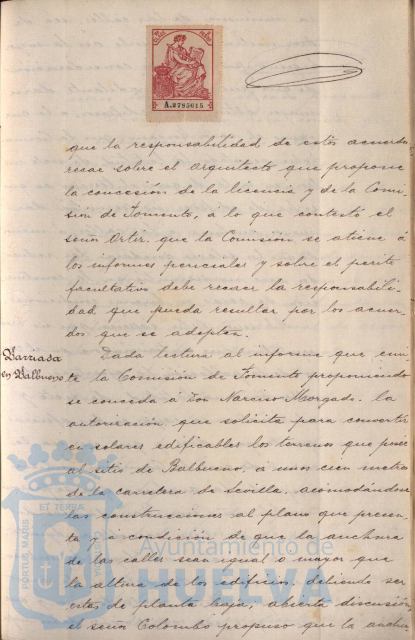 A.2795615
que la responsabilidad de estos acuerdos
recae sobre el Arquitecto que propone
la concesión de la licencia y de la Comi-
sión de Fomento, á lo que contestó el
señor Ortiz, que la Comisión se atiene á
los informes periciales y sobre el perito
facultativo debe recaer la responsabili-
dad que pueda resultar por los acuer-
dos que se adopten.
Barriada
en Balbueno
Dada lectura al informe que emi-
te la Comisión de Fomento proponiendo
se conceda á Don Narciso Morgado, la
autorización que solicita para convertir
en solares edificables los terrenos que posee
al sitio de Balbueno, á unos cien metros
de la carretera de Sevilla, acomodándose
las construcciones al plano que presen-
ta y á condición de que la anchura
de las calles sean igual o mayor que
la altura de los edificios, debiendo ser
estos de planta baja; abierta discusión,
el señor Colombo propuso que la anchu
ET TERRA
PORTUS MARIS
Ayuntamiento de
HUELVA